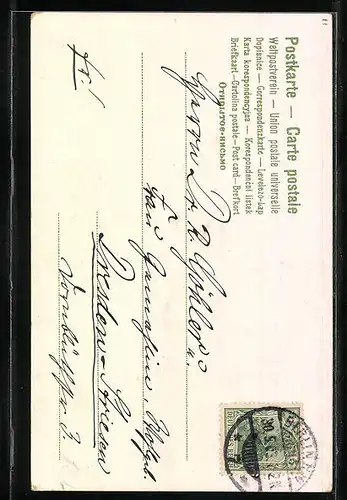 Postkarte — Carte postale
Weltpostverein — Union postale universelle
Dopisnice — Correspondenzkarte — Levelező-Lap
Karta korespondencyjna — Korespondenční lístek
Briefkaart — Cartolina postale — Post card — Brefkort
Открытое письмо
Herrn Dr. R. Göhler
Frau Gemahlin,
Dresden-Striesen
3.
Fr!
BERLIN